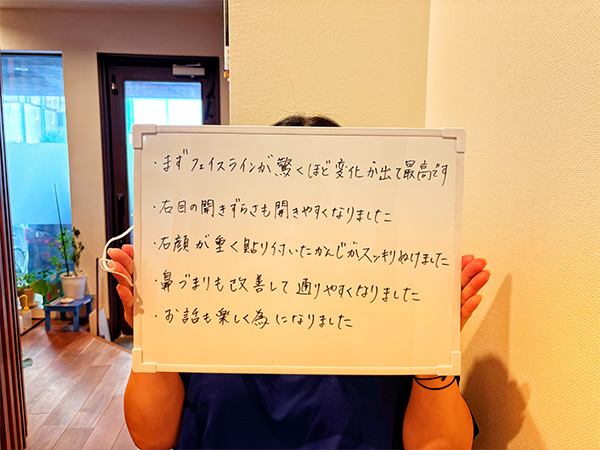 ・まずフェイスラインが驚くほど変化が出て最高です
・右目の開きずらさも開きやすくなりました
・右顔が重く貼り付いたかんじがスッキリぬけました
・鼻づまりも改善して通りやすくなりました
・お話も楽しく為になりました